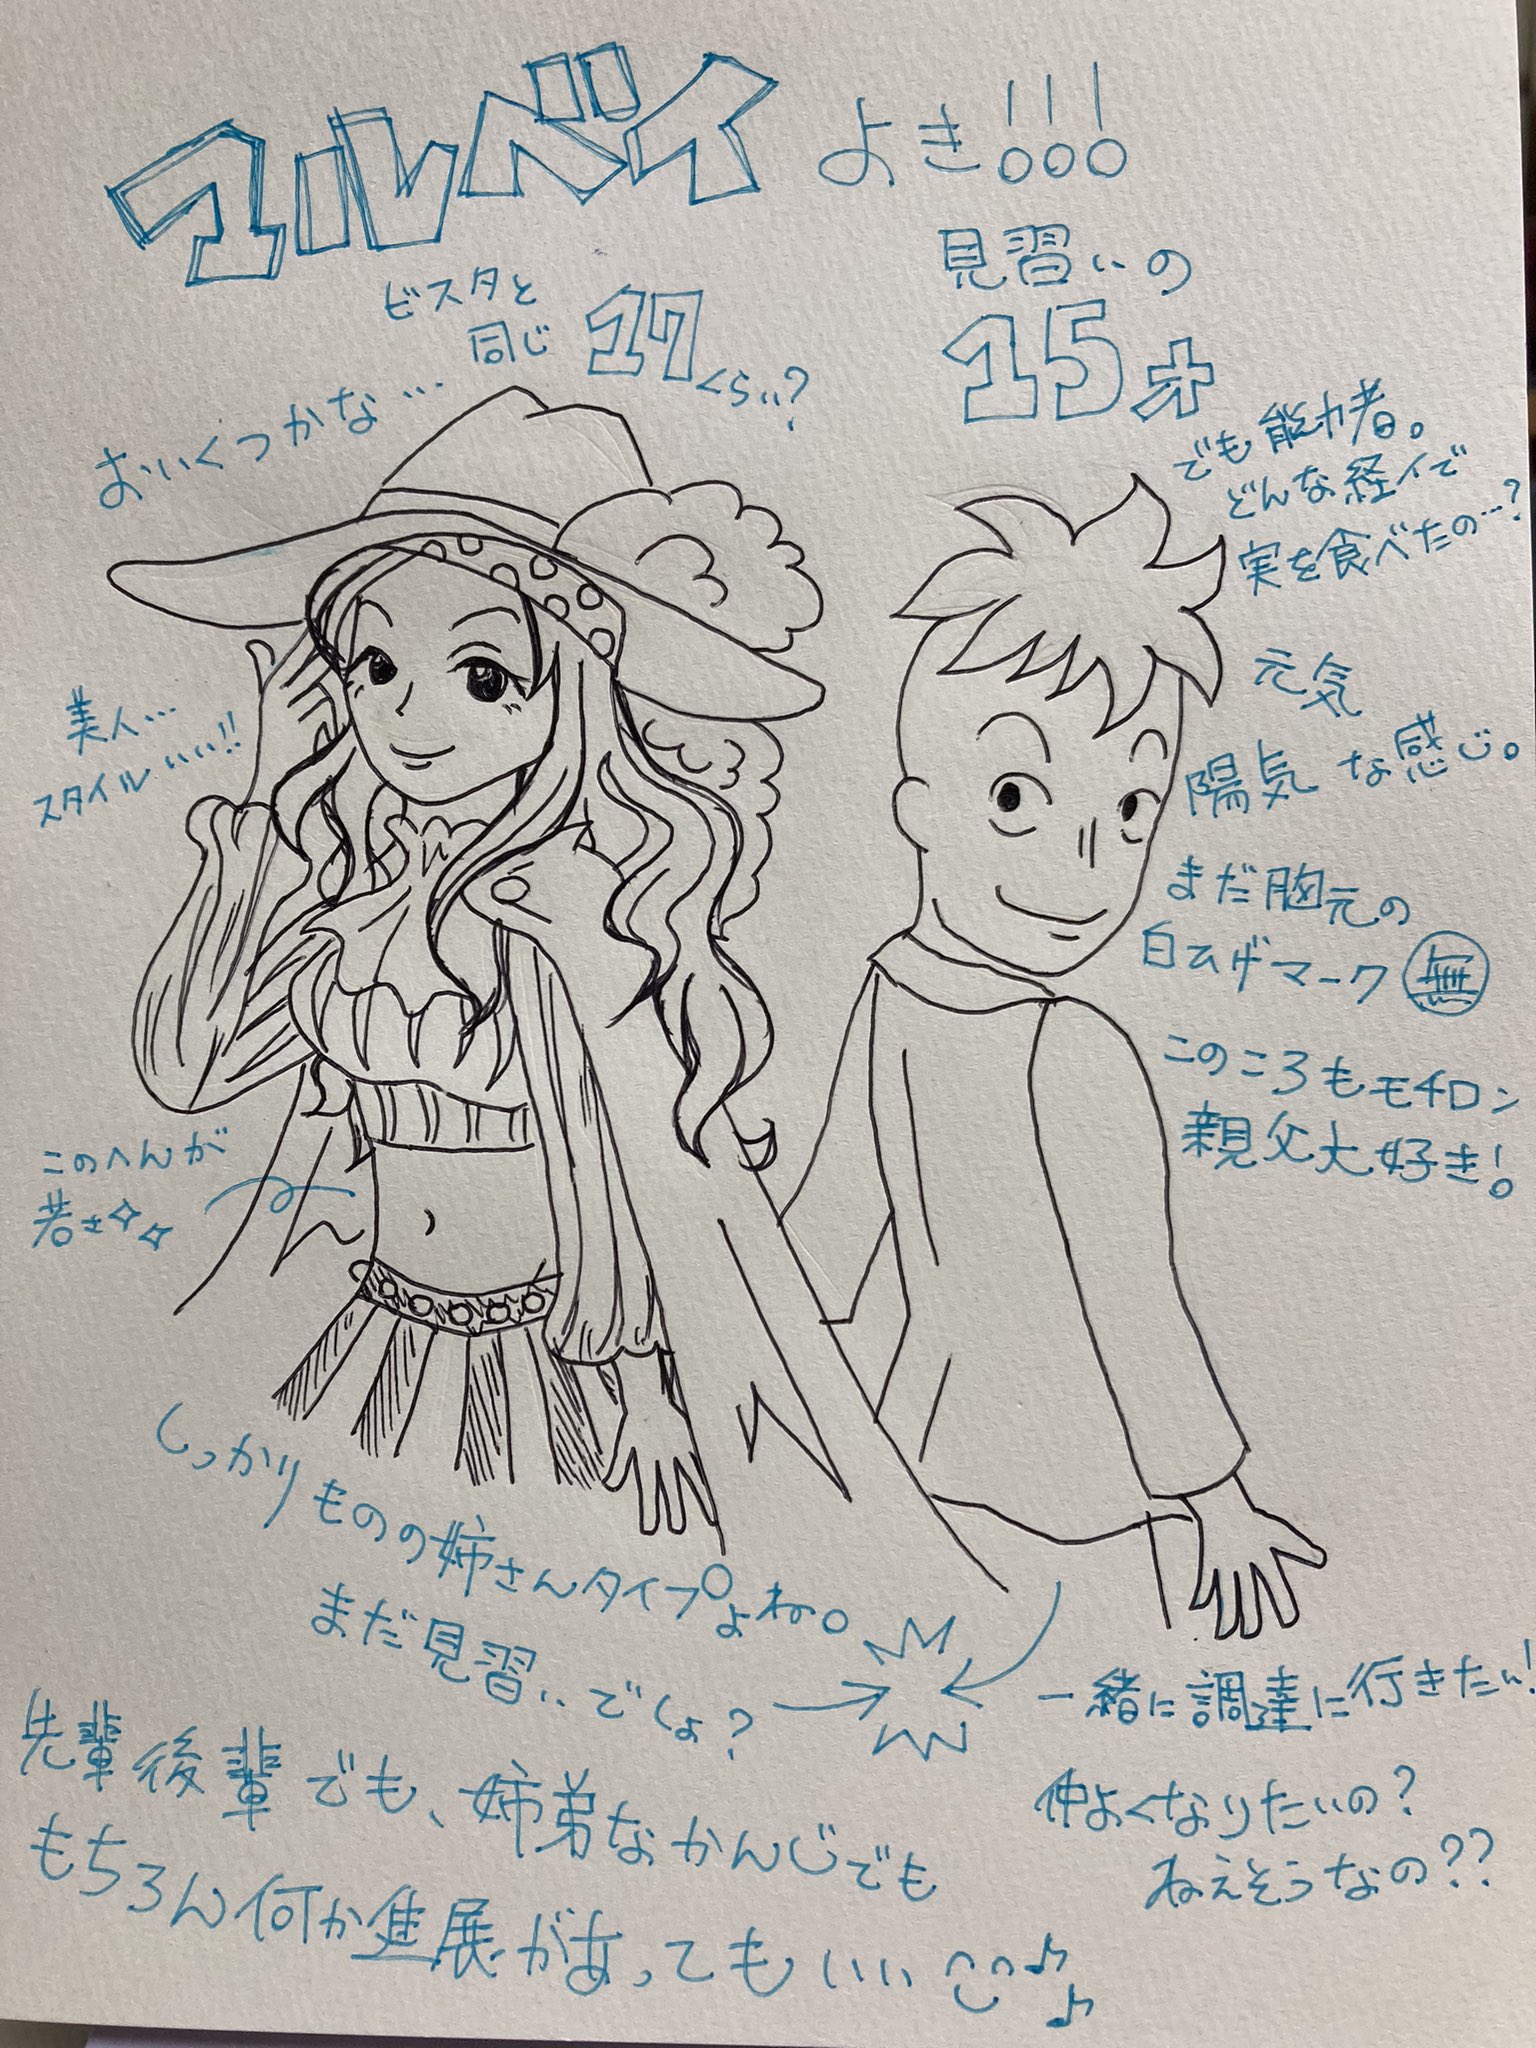 マルベイ よき!!!
ビスタと
同じ 17くらい?
おいくつかな…
見習いの
15才
でも能力者。
どんな経イで
実を食べたの…?
元気
陽気な感じ。
美人…
スタイルいい!!
まだ胸元の
白ひげマーク 無
このころもモチロン
親父大好き!
このへんが
若さ
しっかりものの姉さんタイプよね。
まだ見習いでしょ?
一緒に調達に行きたい!
仲よくなりたいの?
ねえそうなの??
先輩後輩でも、姉弟なかんじでも
もちろん何か進展があってもいい♪♪